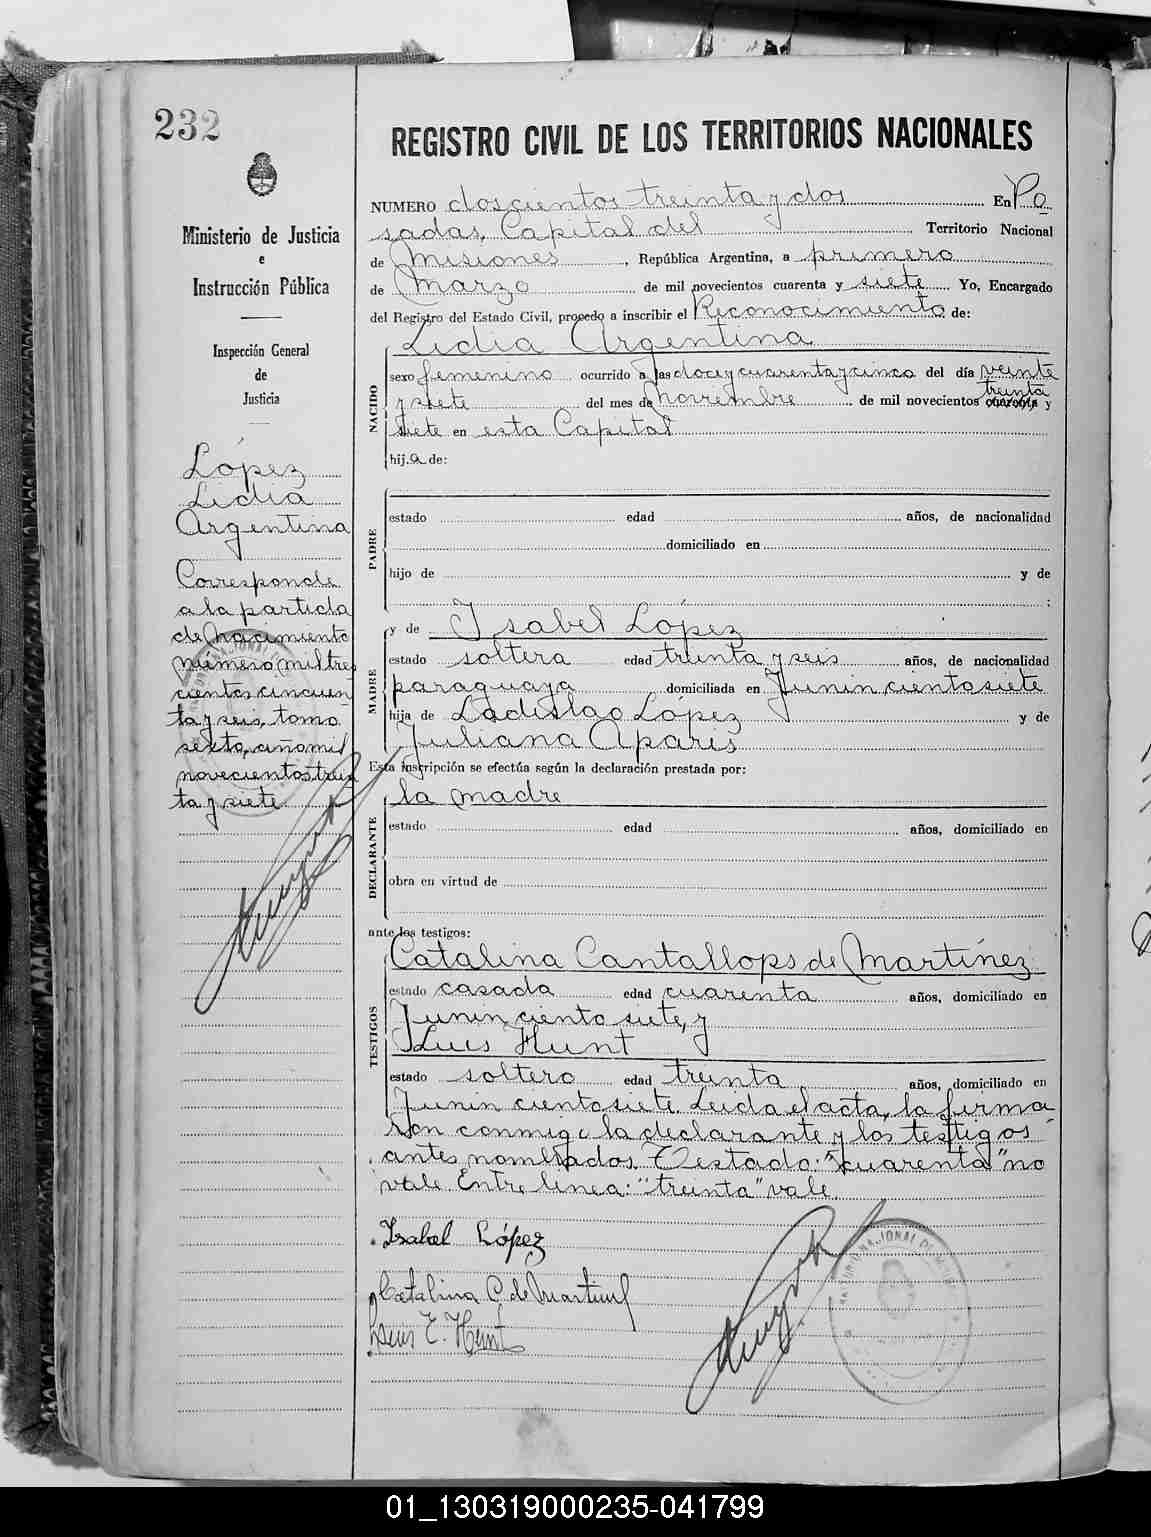 232
Ministerio de Justicia
e
Instrucción Pública
Inspección General
de
Justicia
López
Lidia
Argentina
Corresponde
a la partida
de Nacimiento
número mil tres
cientos cincuen
ta y seis, tomo
sexto, año mil
novecientos trein
ta y siete.
REGISTRO CIVIL DE LOS TERRITORIOS NACIONALES
NUMERO doscientos treinta y dos En Po
sadas, Capital del Territorio Nacional
de Misiones, República Argentina, a primero
de Marzo de mil novecientos cuarenta y siete Yo, Encargado
del Registro del Estado Civil, procedo a inscribir el Reconocimiento de:
Lidia Argentina
NACIDO
sexo femenino ocurrido a las doce y cuarenta y cinco del día veinte
treinta
y siete del mes de Noviembre de mil novecientos cuarenta y
siete en esta Capital
hija de:
PADRE
estado edad años, de nacionalidad
domiciliado en
hijo de y de
:
MADRE
y de Isabel López
estado soltera edad treinta y seis años, de nacionalidad
paraguaya domiciliada en Junin ciento siete
hija de Ladislao López y de
Juliana Aparis
Esta inscripción se efectúa según la declaración prestada por:
la madre
DECLARANTE
estado edad años, domiciliado en
obra en virtud de
ante los testigos:
TESTIGOS
Catalina Cantallops de Martínez
estado casada edad cuarenta años, domiciliado en
Junin ciento siete, y
Luis Hunt
estado soltero edad treinta años, domiciliado en
Junin ciento siete. Leida el acta, la firma
ron conmigo la declarante y los testigos
antes nombrados. Testado: "cuarenta" no
vale. Entre linea: "treinta" vale.
Isabel López
Catalina C de Martinez
Luis E. Hunt
01_130319000235-041799